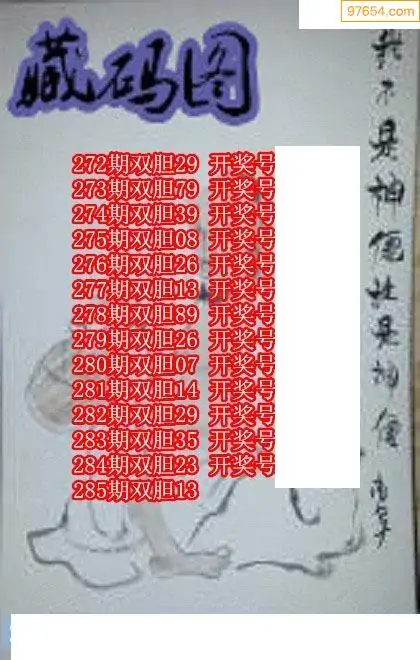 97654.com
藏码图
272期双胆29 开奖号
273期双胆79 开奖号
274期双胆39 开奖号
275期双胆08 开奖号
276期双胆26 开奖号
277期双胆13 开奖号
278期双胆89 开奖号
279期双胆26 开奖号
280期双胆07 开奖号
281期双胆14 开奖号
282期双胆29 开奖号
283期双胆35 开奖号
284期双胆23 开奖号
285期双胆13